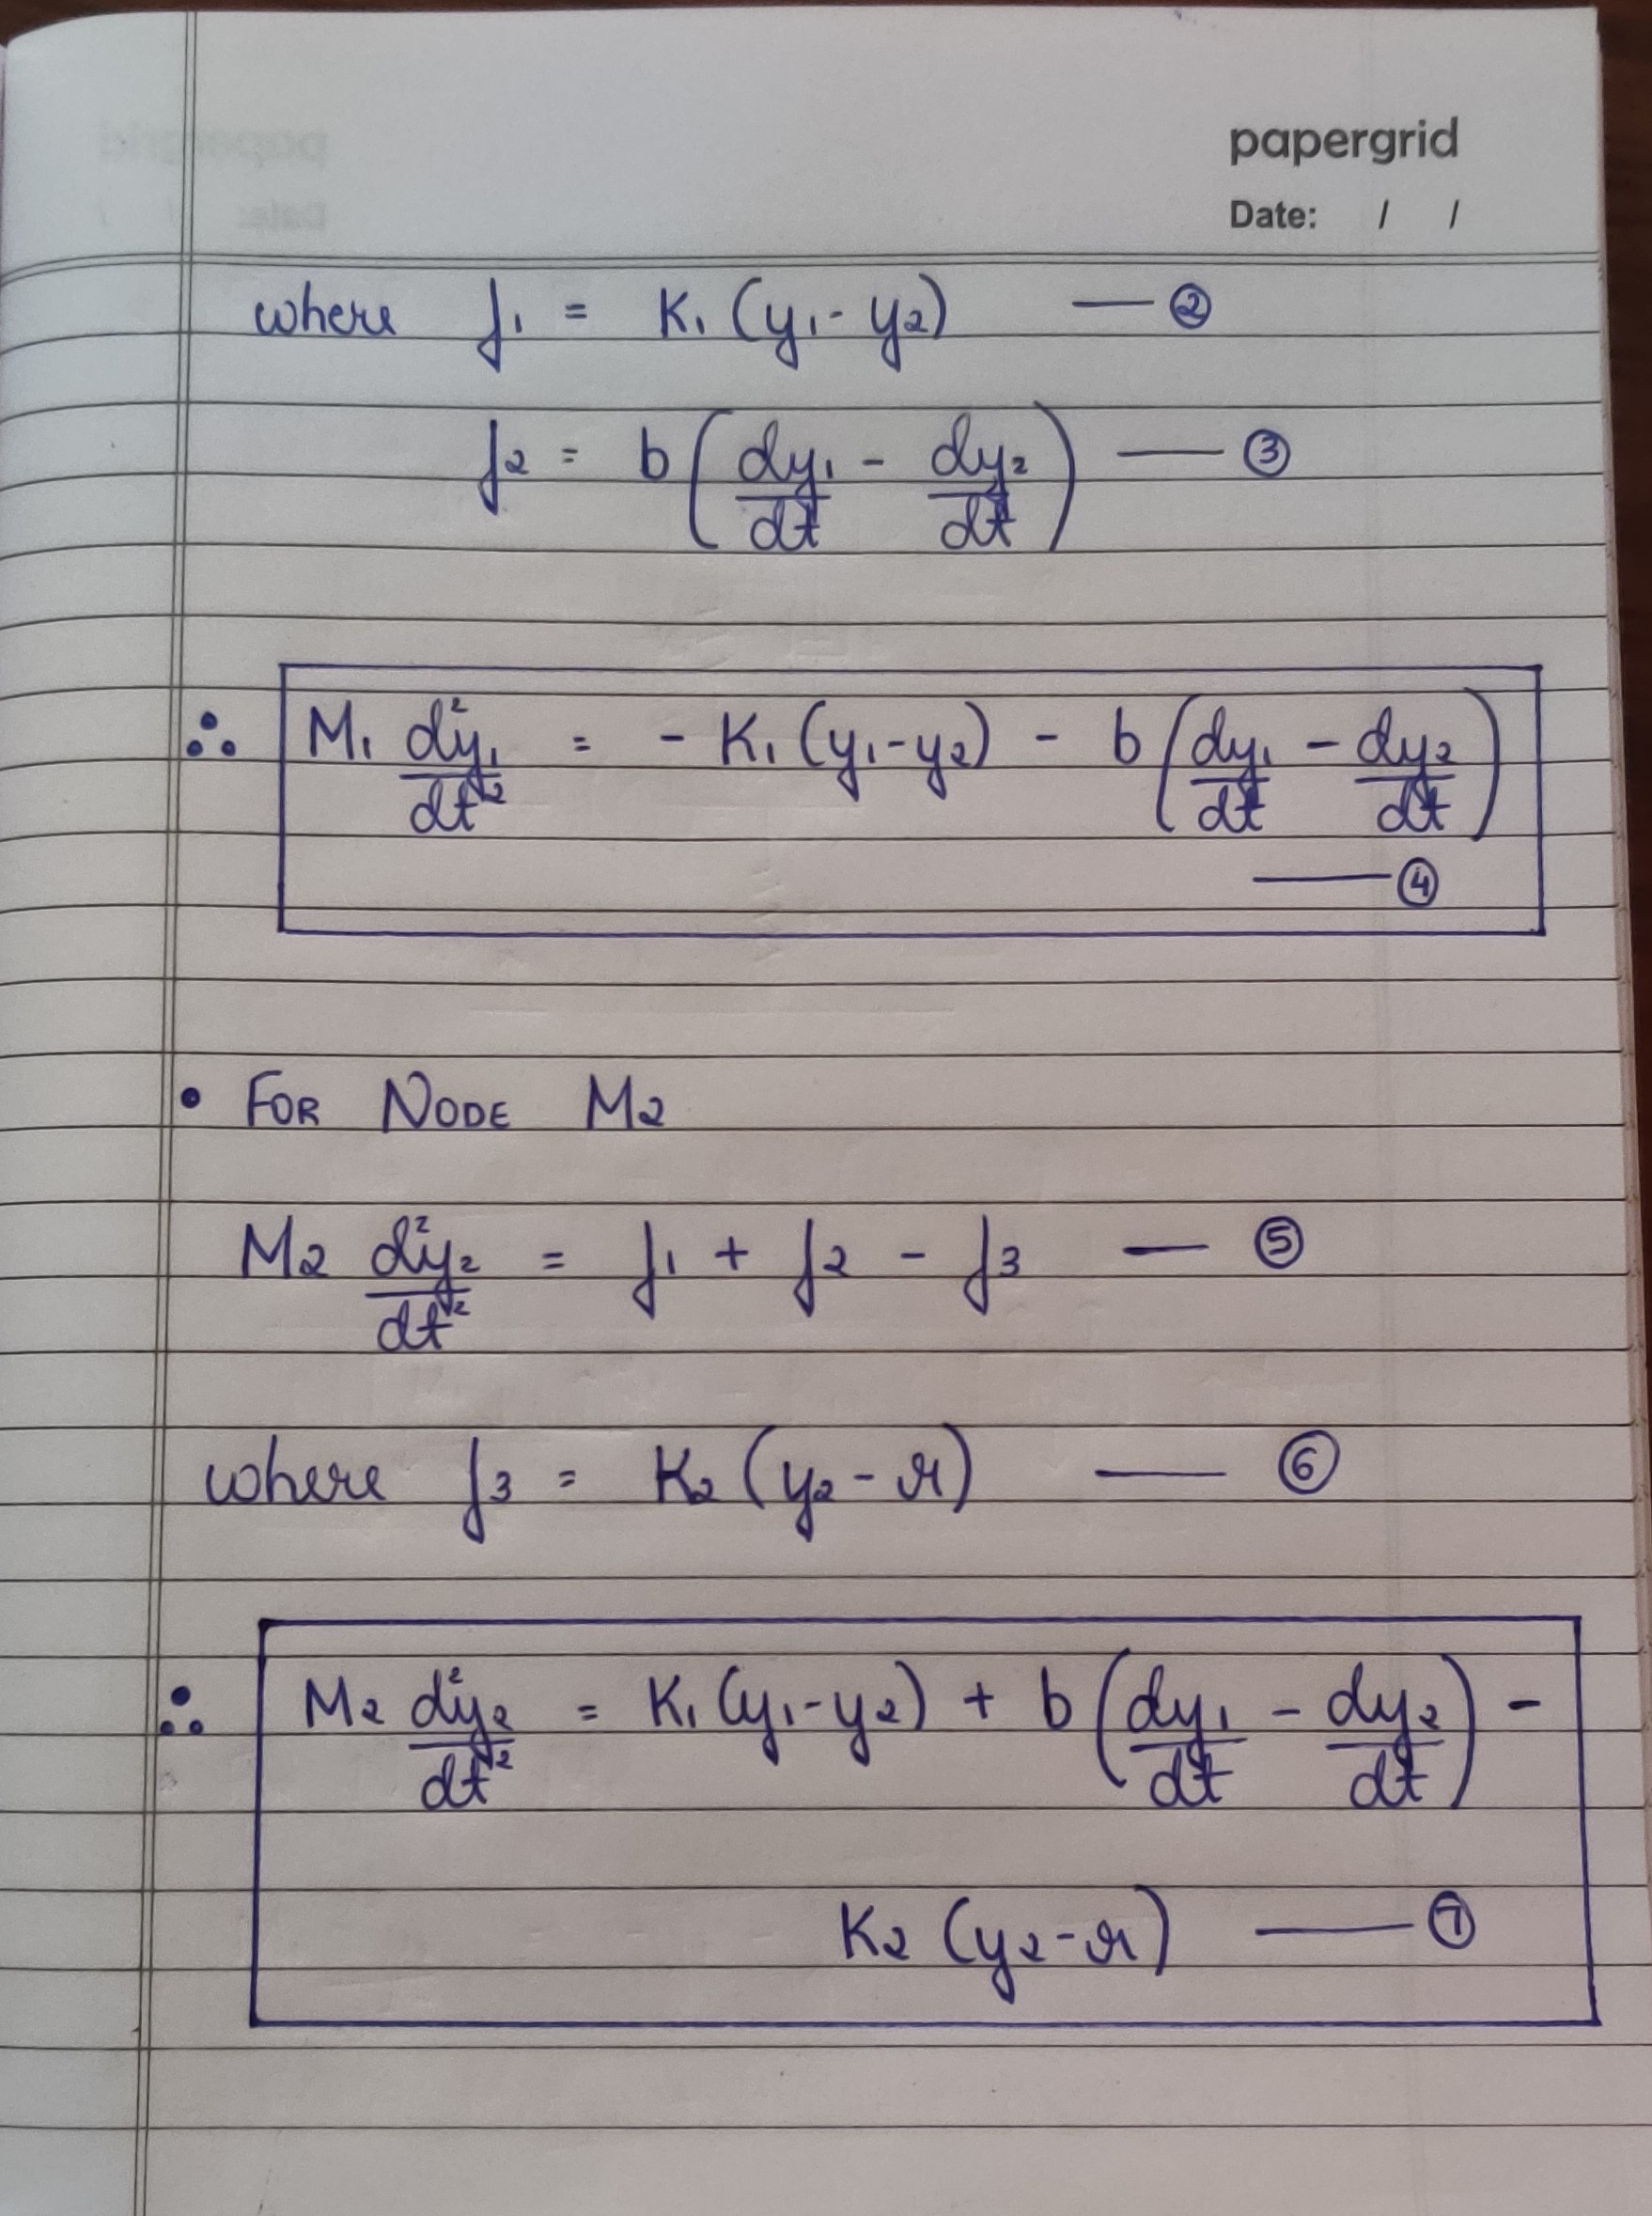 papergrid
Date: / /
where f₁ = K₁ (y₁ - y₂) — ②
f₂ = b (dy₁/dt - dy₂/dt) — ③
∴ M₁ d²y₁/dt² = - K₁ (y₁ - y₂) - b (dy₁/dt - dy₂/dt)
— ④
• FOR NODE M₂
M₂ d²y₂/dt² = f₁ + f₂ - f₃ — ⑤
where f₃ = K₂ (y₂ - r) — ⑥
∴ M₂ d²y₂/dt² = K₁ (y₁ - y₂) + b (dy₁/dt - dy₂/dt) -
K₂ (y₂ - r) — ⑦